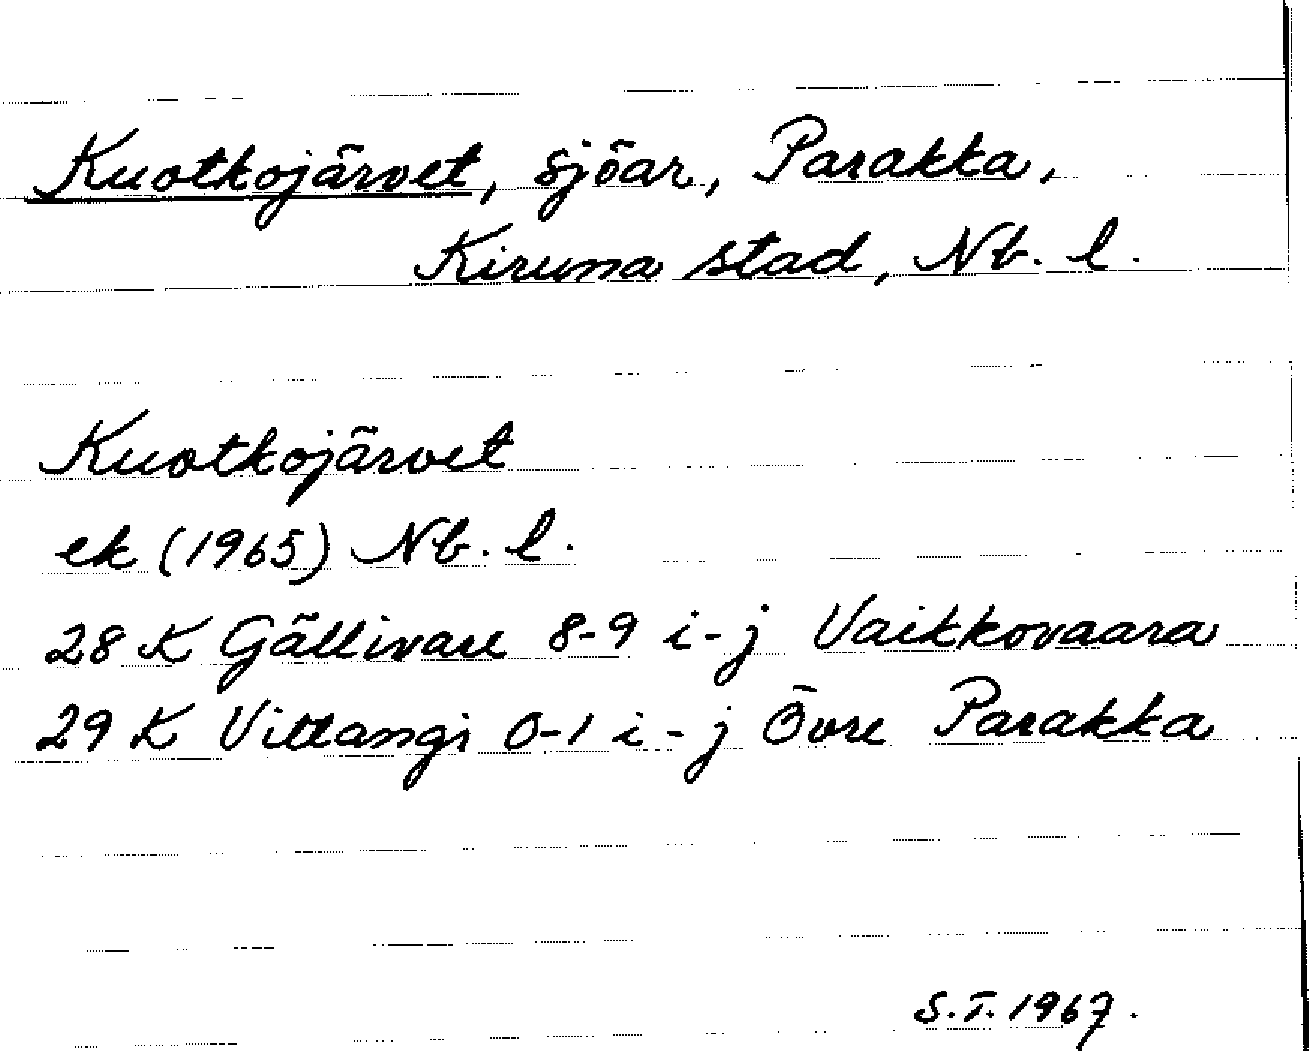 Kuotkojärvet, sjöar, Parakka,
Kiruna stad, Nb. l.
Kuotkojärvet
ek (1965) Nb. l.
28 K Gällivare 8-9 i-j Vaikkovaara
29 K Vittangi 0-1 i-j Övre Parakka
S.T. 1967.